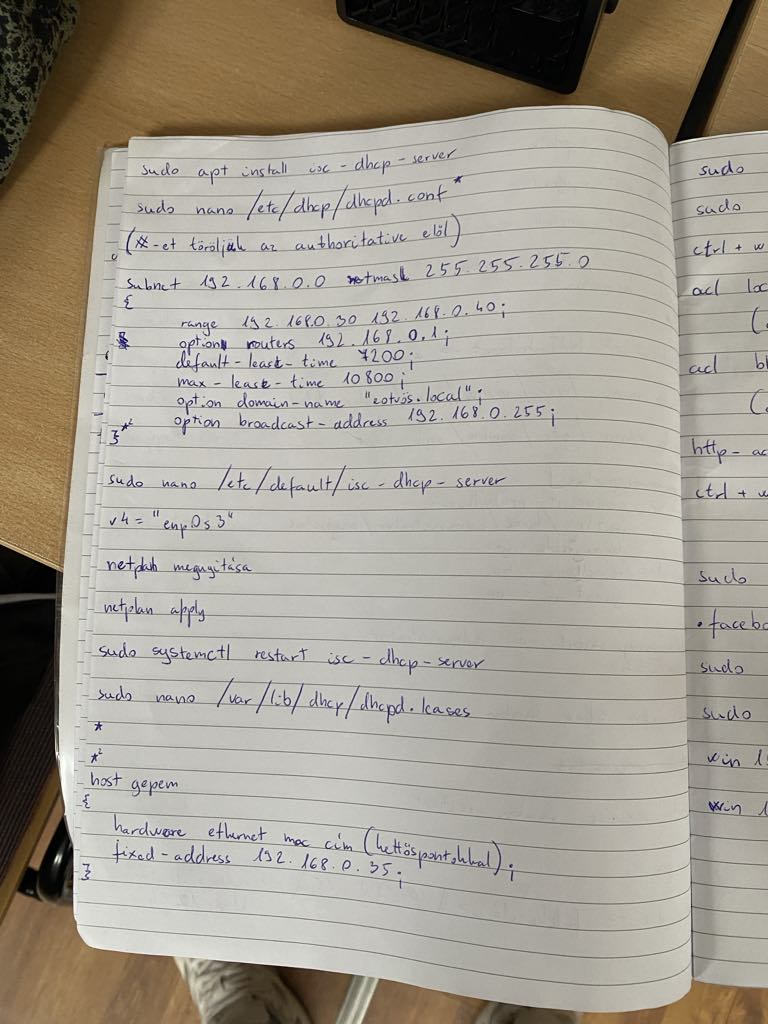 sudo apt install isc-dhcp-server
sudo nano /etc/dhcp/dhcpd.conf *
(#-et töröljük az authoritative elől)
subnet 192.168.0.0 netmask 255.255.255.0
{
range 192.168.0.30 192.168.0.40;
option routers 192.168.0.1;
default-least-time 7200;
max-least-time 10800;
option domain-name "eotvos.local";
option broadcast-address 192.168.0.255;
} *²
sudo nano /etc/default/isc-dhcp-server
v4 = "enp0s3"
netplan
netplan apply
sudo systemctl restart isc-dhcp-server
sudo nano /var/lib/dhcp/dhcpd.leases
*
*²
host gepem
{
hardware ethernet mac cím (kettőspontokkal);
fixed-address 192.168.0.35;
}
sudo
sudo
ctrl + w
acl
(
acl
(
http-
ctrl + w
sudo
sudo
sudo
win
win